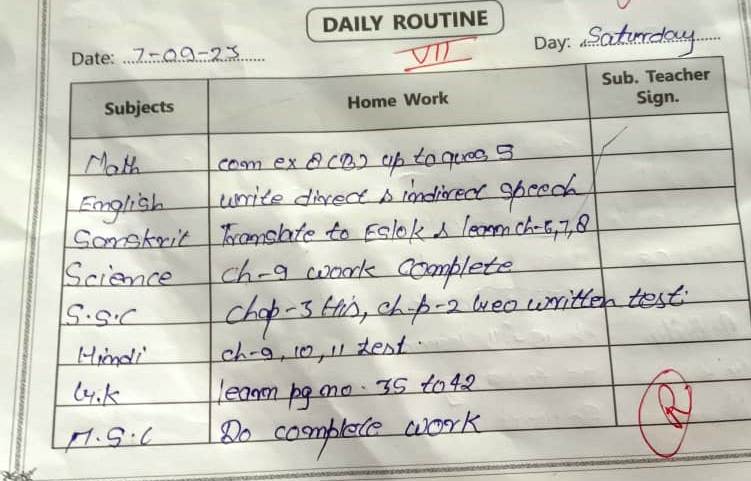 DAILY ROUTINE
Date: 7-09-23 Day: Saturday
VII
Subjects Home Work Sub. Teacher Sign.
Math com ex 8(B) up to ques 5
English write direct & indirect speech
Samskrit Translate to Eslok & learn ch-6,7,8
Science ch-9 work complete
S.S.C chap-3 His, ch-p-2 Geo written test.
Hindi ch-9, 10, 11 test.
G.k learn pg no. 35 to 42
M.S.C Do complete work
R